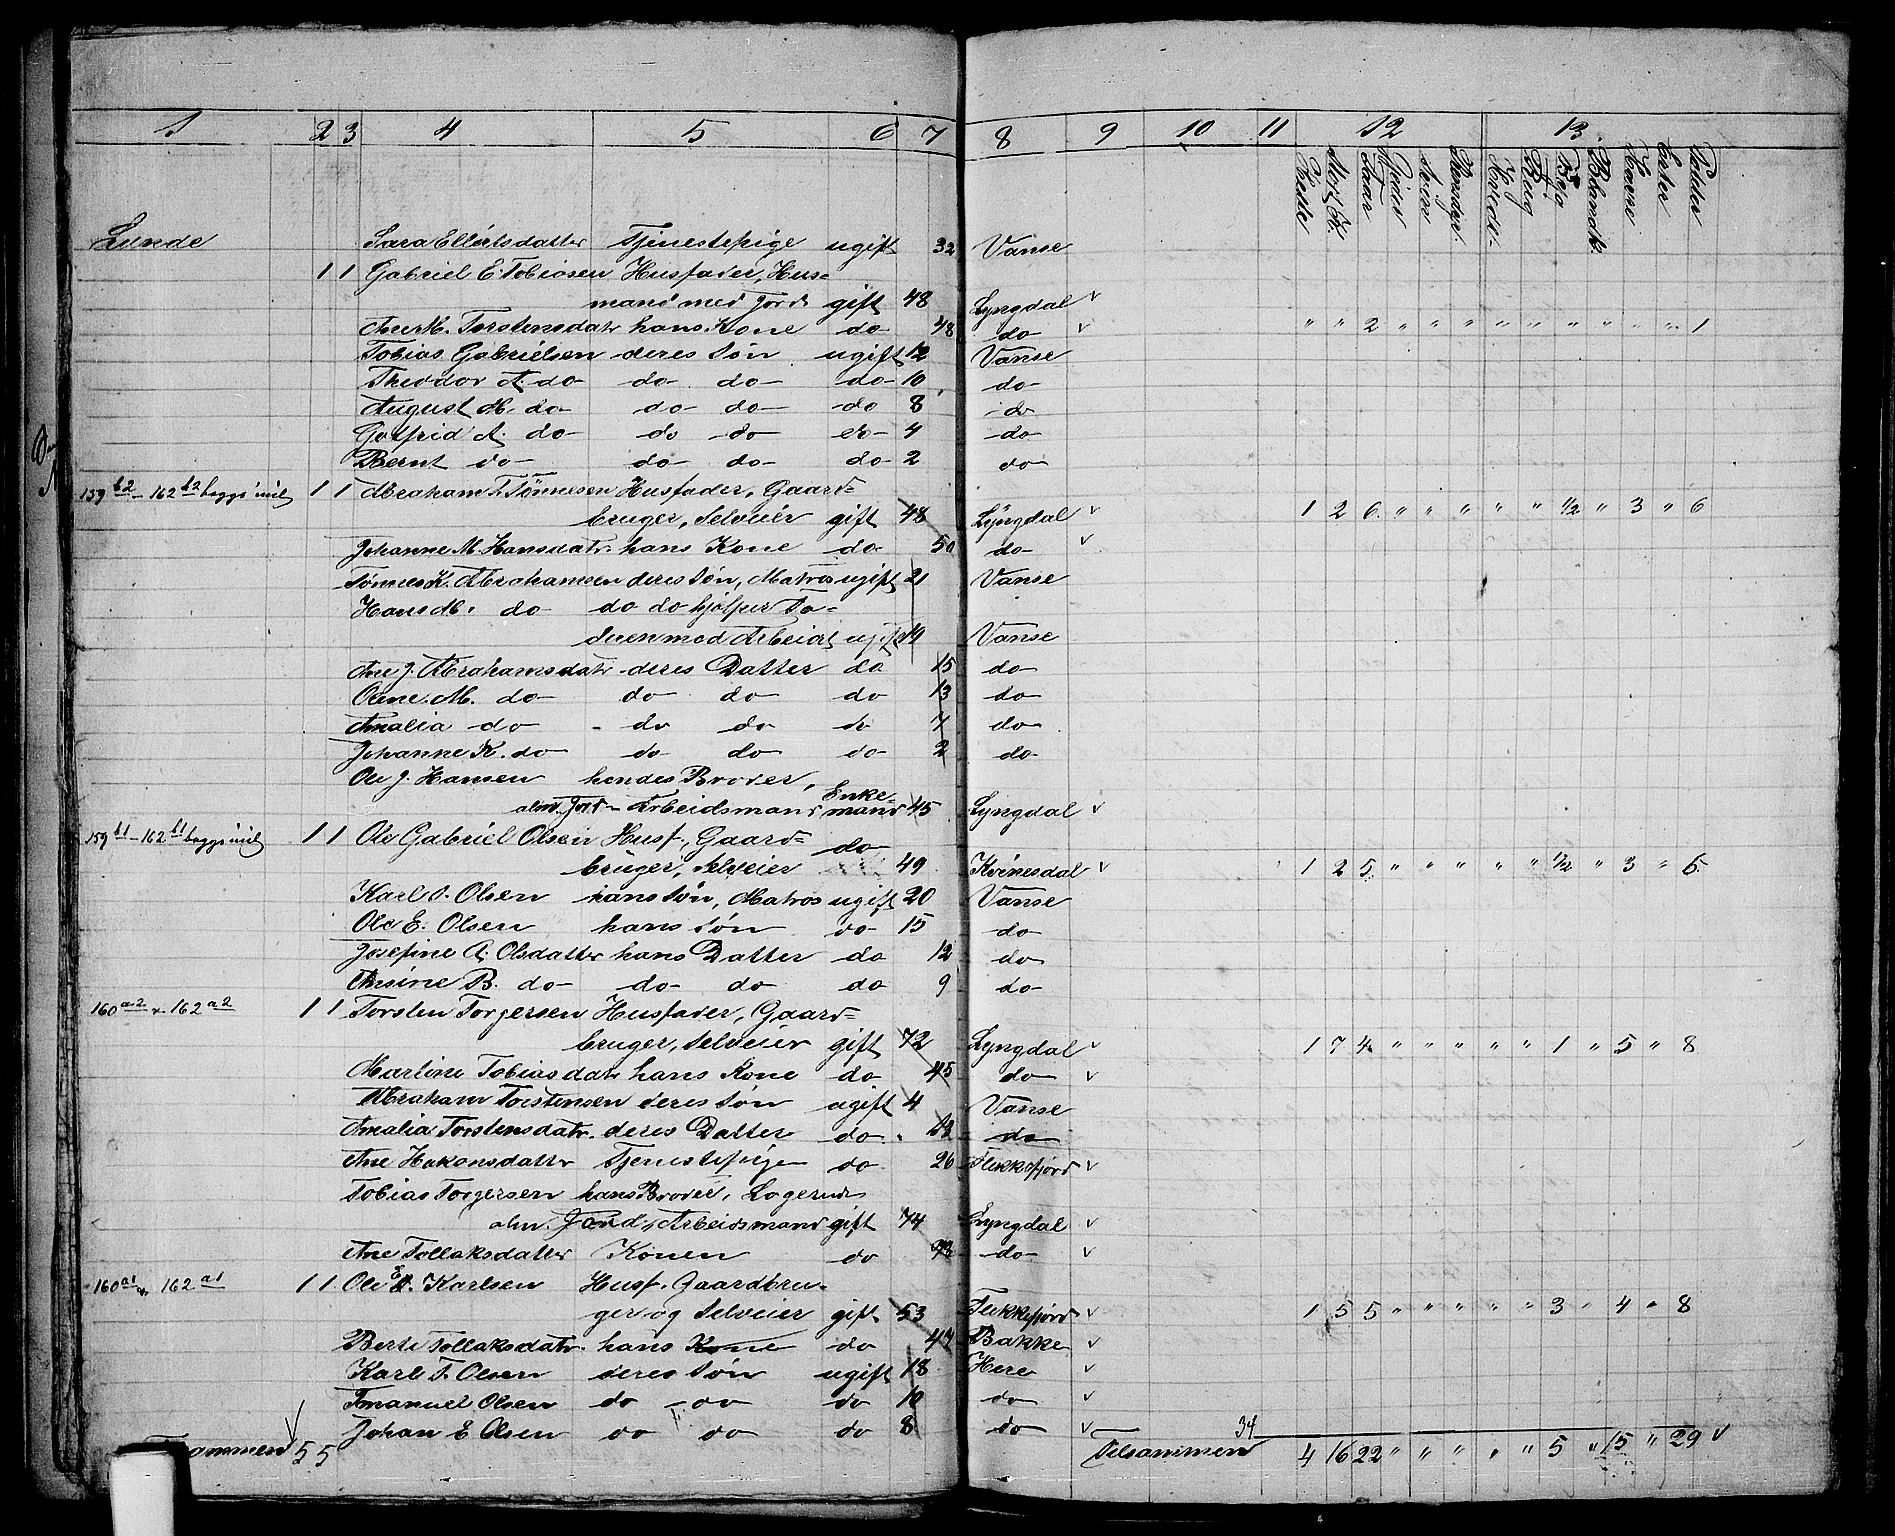 1 2 3 4 5 6 7 8 9 10 11 12 13
Heste Stort Qv. Faar Gjeder Sviin Rensdyr. Hvede Rug Byg Blandk. Havre Erter Poteter
Lunde Sara Ellertsdatter Tjenestepige ugift 32 Vanse
1 1 Gabriel E. Tobiasen Husfader, Hus-
mand med Jord gift 48 Lyngdal v
Ane M. Torstensdatr hans Kone do 48 do v " " 2 " " " " " " " " " 1
Tobias Gabrielsen deres Søn ugift 12 Vanse
Theodor A. do do do do 10 do
August M. do do do do 8 do
Gotfrid A. do do do do 4 do
Bernt do do do do 2 do
159 b2 - 162 b2 byggs ind 1 1 Abraham T. Tønnesen Husfader, Gaard-
bruger, Selveier gift 48 Lyngdal v 1 2 6 " " " " " 1/2 " 3 " 6
Johanne M. Hansdatr. hans Kone do 50 do v
Tønnes K. Abrahamsen deres Søn, Matros ugift 21 Vanse
Hans M. do do do hjelper Fa-
deren med Arbeidet ugift 19 Vanse
Ane J. Abrahamsdatr deres Datter do 15 do
Olene M. do do do do 13 do
Amalia do do do do 7 do
Johanne K. do do do do 2 do
Ole J. Hansen hendes Broder,
alm. Jord-Arbeidsmand Enkemand 45 Lyngdal v
159 b1 - 162 b1 byggs ind 1 1 Ole Gabriel Olsen Husf., Gaard-
bruger, Selveier do 49 Kvinesdal v 1 2 5 " " " " " 1/2 " 3 " 6
Karl T. Olsen hans Søn, Matros ugift 20 Vanse
Ole E. Olsen hans Søn do 15 do
Josefine A. Olsdatter hans Datter do 12 do
Thrine B. do do do do 9 do
160 a2 & 162 a2 1 1 Torsten Torgersen Husfader, Gaard-
bruger, Selveier gift 72 Lyngdal v 1 7 4 " " " " " 1 " 5 " 8
Martine Tobiasdatr hans Kone do 45 do v
Abraham Torstensen deres Søn ugift 4 Vanse
Amalia Torstensdatr. deres Datter do do
Ane Hakonsdatter Tjenestepige do 26 Flekkefjord v
Tobias Torgersen hans Broder, Logerende
alm. Jord-Arbeidsmand gift 74 Lyngdal v
Ane Tollaksdatter Konen do do v
160 a1 & 162 a1 1 1 Ole E. Karlsen Husf. Gaardbru-
ger og Selveier gift 53 Flekkefjord v 1 5 5 " " " " " 3 " 4 " 8
Berte Tollaksdatr. hans Kone do 47 Bakke v
Karl T. Olsen deres Søn ugift 18 Here v
Emanuel Olsen do do do 10 do v
Johan E Olsen do do do 8 do v
Tilsammen 5 5 Tilsammen 34 4 16 22 " " " " " 5 " 15 " 29 v